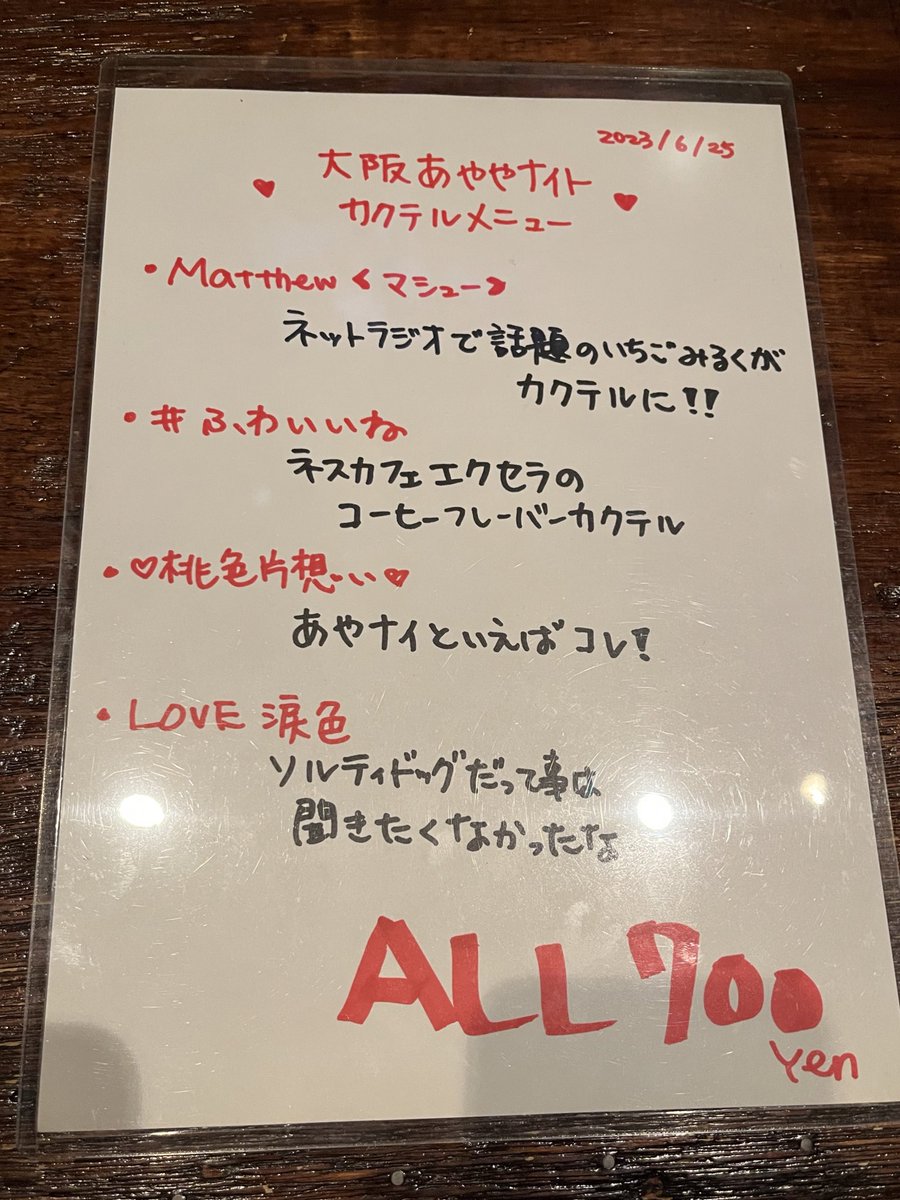 2023/6/25
♥ 大阪あややナイト ♥
カクテルメニュー
・Matthew<マシュー>
ネットラジオで話題のいちごみるくが
カクテルに!!
・#ふわいいね
ネスカフェエクセラの
コーヒーフレーバーカクテル
・♡桃色片想い♡
あやナイといえばコレ!
・LOVE涙色
ソルティドッグだって事は
聞きたくなかったな
ALL 700
yen